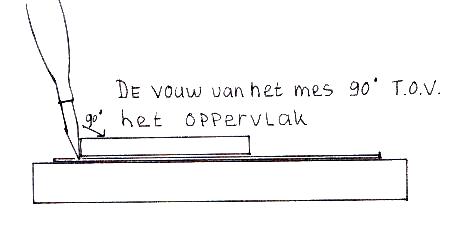 DE vouw van het mes 90° T.O.V.
90° het OPPERVLAK